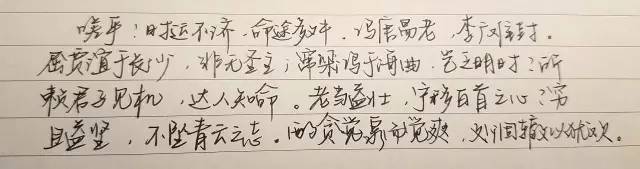 嗟乎！时运不济，命途多舛。冯唐易老，李广难封。
屈贾谊于长沙，非无圣主；窜梁鸿于海曲，岂乏明时？所
赖君子见机，达人知命。老当益壮，宁移白首之心？穷
且益坚，不坠青云之志。酌贪泉而觉爽，处涸辙以犹欢。